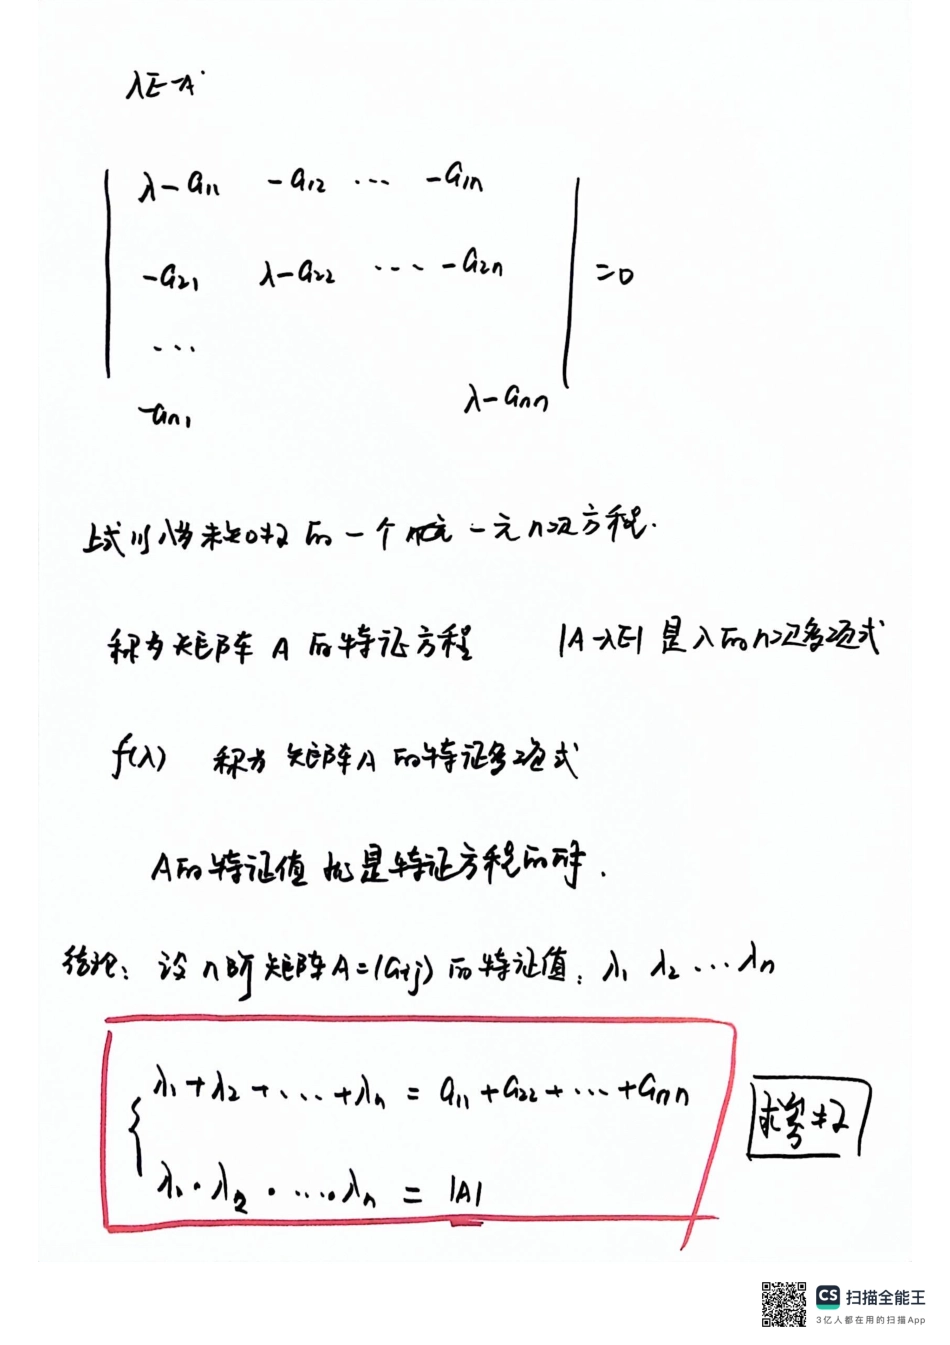 λE-A
λ-a₁₁ -a₁₂ ... -a₁ₙ
-a₂₁ λ-a₂₂ .... -a₂ₙ =0
...
-aₙ₁ λ-aₙₙ
上式以λ为未知数的一个 一元n次方程.
积为矩阵 A 的特征方程 |A-λE| 是λ的n次多项式
f(λ) 积为 矩阵A 的特征多项式
A的特征值 就是特征方程的解.
结论: 设 n阶矩阵A=(aij) 的特征值: λ₁ λ₂ ... λₙ
λ₁+λ₂+...+λₙ = a₁₁+a₂₂+...+aₙₙ
λ₁·λ₂·....λₙ = |A|
求参数
CS 扫描全能王
3亿人都在用的扫描App